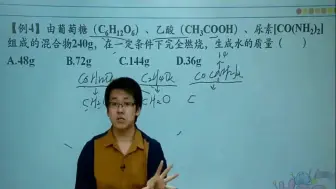 【例4】由葡萄糖（C₆H₁₂O₆）、乙酸（CH₃COOH）、尿素[CO(NH₂)₂]
组成的混合物240g，在一定条件下完全燃烧，生成水的质量（ ）
A.48g B.72g C.144g D.36g
C₆H₁₂O₆ C₂H₄O₂
CH₂O CH₂O C